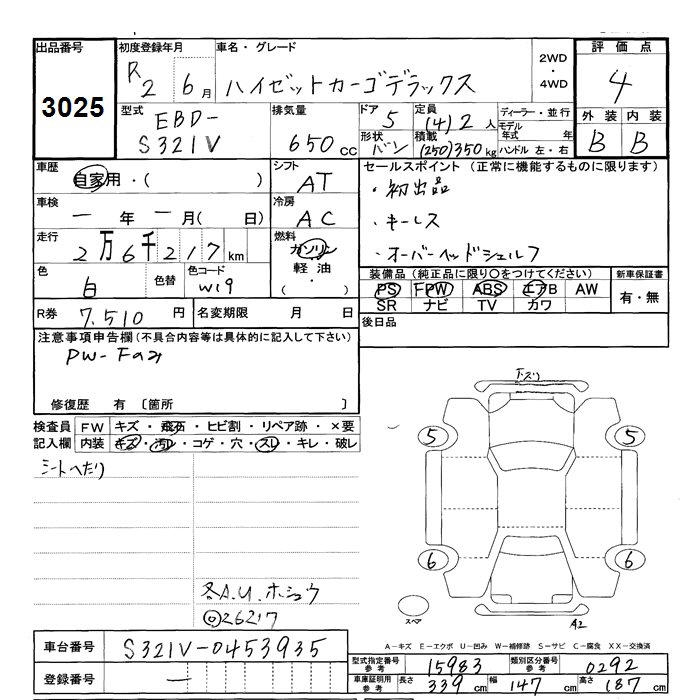 出品番号
3025
初度登録年月
R2 6月
車名・グレード
ハイゼットカーゴデラックス
2WD・4WD
評価点
4
外装 内装
B B
型式
EBD-S321V
排気量
650cc
ドア 5
形状 バン
定員 (4)2人
積載 (250)350kg
ディーラー・並行
モデル年式 年
ハンドル 左・右
車歴
自家用・( )
シフト
AT
セールスポイント(正常に機能するものに限ります)
・初出品
・キーレス
・オーバーヘッドシェルフ
車検
一年一月( 日)
冷房
AC
走行
2万6千217km
燃料
ガソリン
軽油
・( )
色
白
色替
色コード
W19
装備品(純正品に限り○をつけてください)
PS FPW ABS エアB AW
SR ナビ TV カワ
新車保証書
有・無
R券 7,510円
名変期限 月 日
後日品
注意事項申告欄(不具合内容等は具体的に記入して下さい)
PW-Fのみ
修復歴 有 〔箇所 〕
検査員記入欄
FW キズ・飛石・ヒビ割・リペア跡・×要
内装 キズ・汚れ・コゲ・穴・スレ・キレ・破レ
シートへたり
各A.U.ホシュウ
◎26217
下ズリ
5 5
6 6
スペア
A2
A-キズ E-エクボ U-凹み W-補修跡 S-サビ C-腐食 XX-交換済
車台番号 S321V-0453935
登録番号 一
型式指定番号参考 15983
類別区分番号参考 0292
車庫証明用参考 長さ 339cm 幅 147cm 高さ 187cm